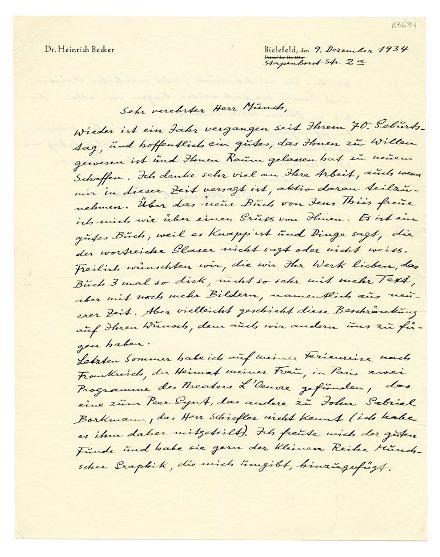 K3694
Dr. Heinrich Becker
Bielefeld, den 9. Dezember 1934
Stapenhorst-Str. 2
Sehr verehrter Herr Munch,
Wieder ist ein Jahr vergangen seit Ihrem 70. Geburts-
tag, und hoffentlich ein gutes, das Ihnen zu Willen
gewesen ist und Ihnen Raum gelassen hat zu neuem
Schaffen. Ich denke sehr viel an Ihre Arbeit, auch wenn
mir in dieser Zeit versagt ist, aktiv daran teilzu-
nehmen. Über das neue Buch von Jens Thiis freue
ich mich wie über einen Gruss von Ihnen. Es ist ein
gutes Buch, weil es knapp ist und Dinge sagt, die
der wortreiche Glaser nicht sagt oder nicht weiss.
Freilich wünschten wir, die wir Ihr Werk lieben, das
Buch 3 mal so dick, nicht so sehr mit mehr Text,
aber mit noch mehr Bildern, namentlich aus neu-
erer Zeit. Aber vielleicht geschieht diese Beschränkung
auf Ihren Wunsch, dem auch wir andern uns zu fü-
gen haben.
Letzten Sommer habe ich auf meiner Ferienreise nach
Frankreich, der Heimat meiner Frau, in Paris zwei
Programme des Theaters L'Oeuvre gefunden, das
eine zum Peer Gynt, das andere zu John Gabriel
Borkmann, das Herr Schiefler nicht kennt (ich habe
es ihm daher mitgeteilt). Ich freute mich der guten
Funde und habe sie gern der kleinen Reihe Munch-
scher Graphik, die mich umgibt, hinzugefügt.